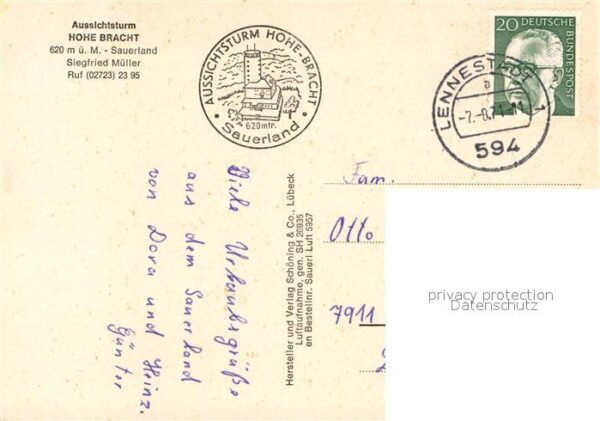 Aussichtsturm
HOHE BRACHT
620 m ü. M. - Sauerland
Siegfried Müller
Ruf (02723) 23 95
AUSSICHTSTURM HOHE-BRACHT
620mtr.
Sauerland
20 DEUTSCHE
BUNDESPOST
LENNESTADT 1
594
Viele Urlaubsgrüße
aus dem Sauerland
von Dora und Heinz.
Günter
Hersteller und Verlag Schöning & Co., Lübeck
Luftaufnahme, gen. SH 26935
en Bestellnr. Sauerl Luft 5957
Fam.
Otto
7911
privacy protection
Datenschutz